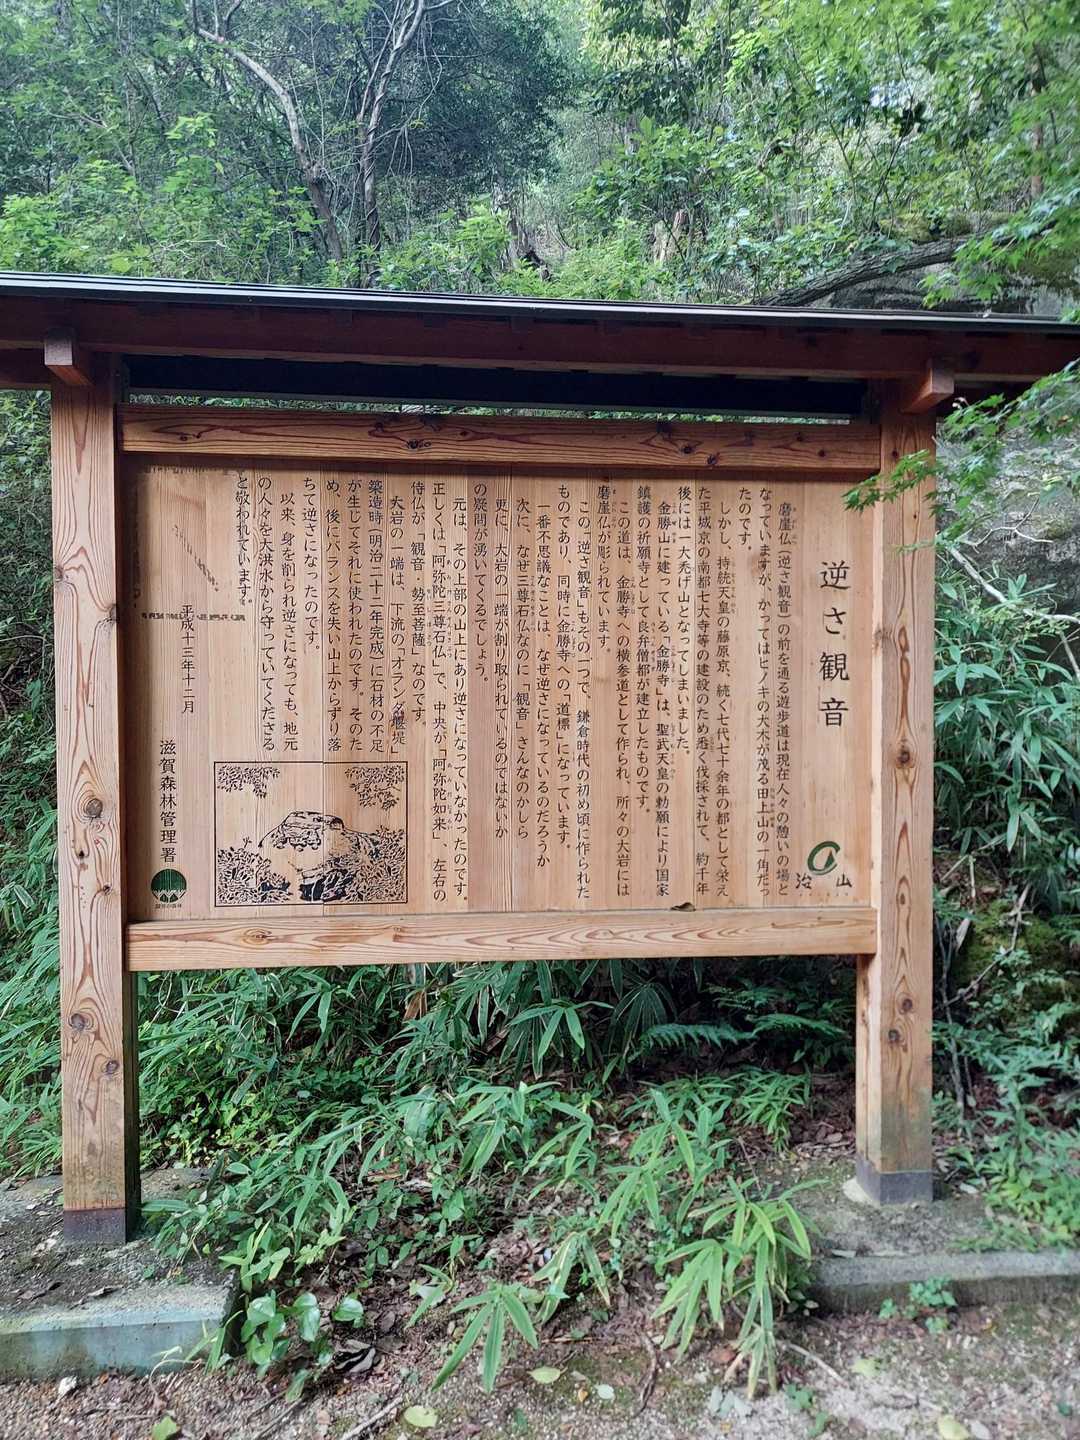 逆さ観音
磨崖仏（逆さ観音）の前を通る遊歩道は現在人々の憩いの場と
なっていますが、かつてはヒノキの大木が茂る田上山の一角だっ
たのです。
しかし、持統天皇の藤原京、続く七代七十余年の都として栄え
た平城京の南都七大寺等の建設のため悉く伐採されて、約千年
後には一大禿げ山となってしまいました。
金勝山に建っている「金勝寺」は、聖武天皇の勅願により国家
鎮護の祈願寺として良弁僧都が建立したものです。
この道は、金勝寺への横参道として作られ、所々の大岩には
磨崖仏が彫られています。
この「逆さ観音」もその一つで、鎌倉時代の初め頃に作られた
ものであり、同時に金勝寺への「道標」になっています。
一番不思議なことは、なぜ逆さになっているのだろうか
次に、なぜ三尊石仏なのに「観音」さんなのかしら
更に、大岩の一端が割り取られているのではないか
の疑問が湧いてくるでしょう。
元は、その上部の山上にあり逆さになっていなかったのです。
正しくは「阿弥陀三尊石仏」で、中央が「阿弥陀如来」、左右の
侍仏が「観音・勢至菩薩」なのです。
大岩の一端は、下流の「オランダ堰堤」
築造時（明治二十二年完成）に石材の不足
が生じてそれに使われたのです。そのた
め、後にバランスを失い山上からずり落
ちて逆さになったのです。
以来、身を削られ逆さになっても、地元
の人々を大洪水から守っていてくださる
と敬われています。
平成十三年十二月
滋賀森林管理署
治山